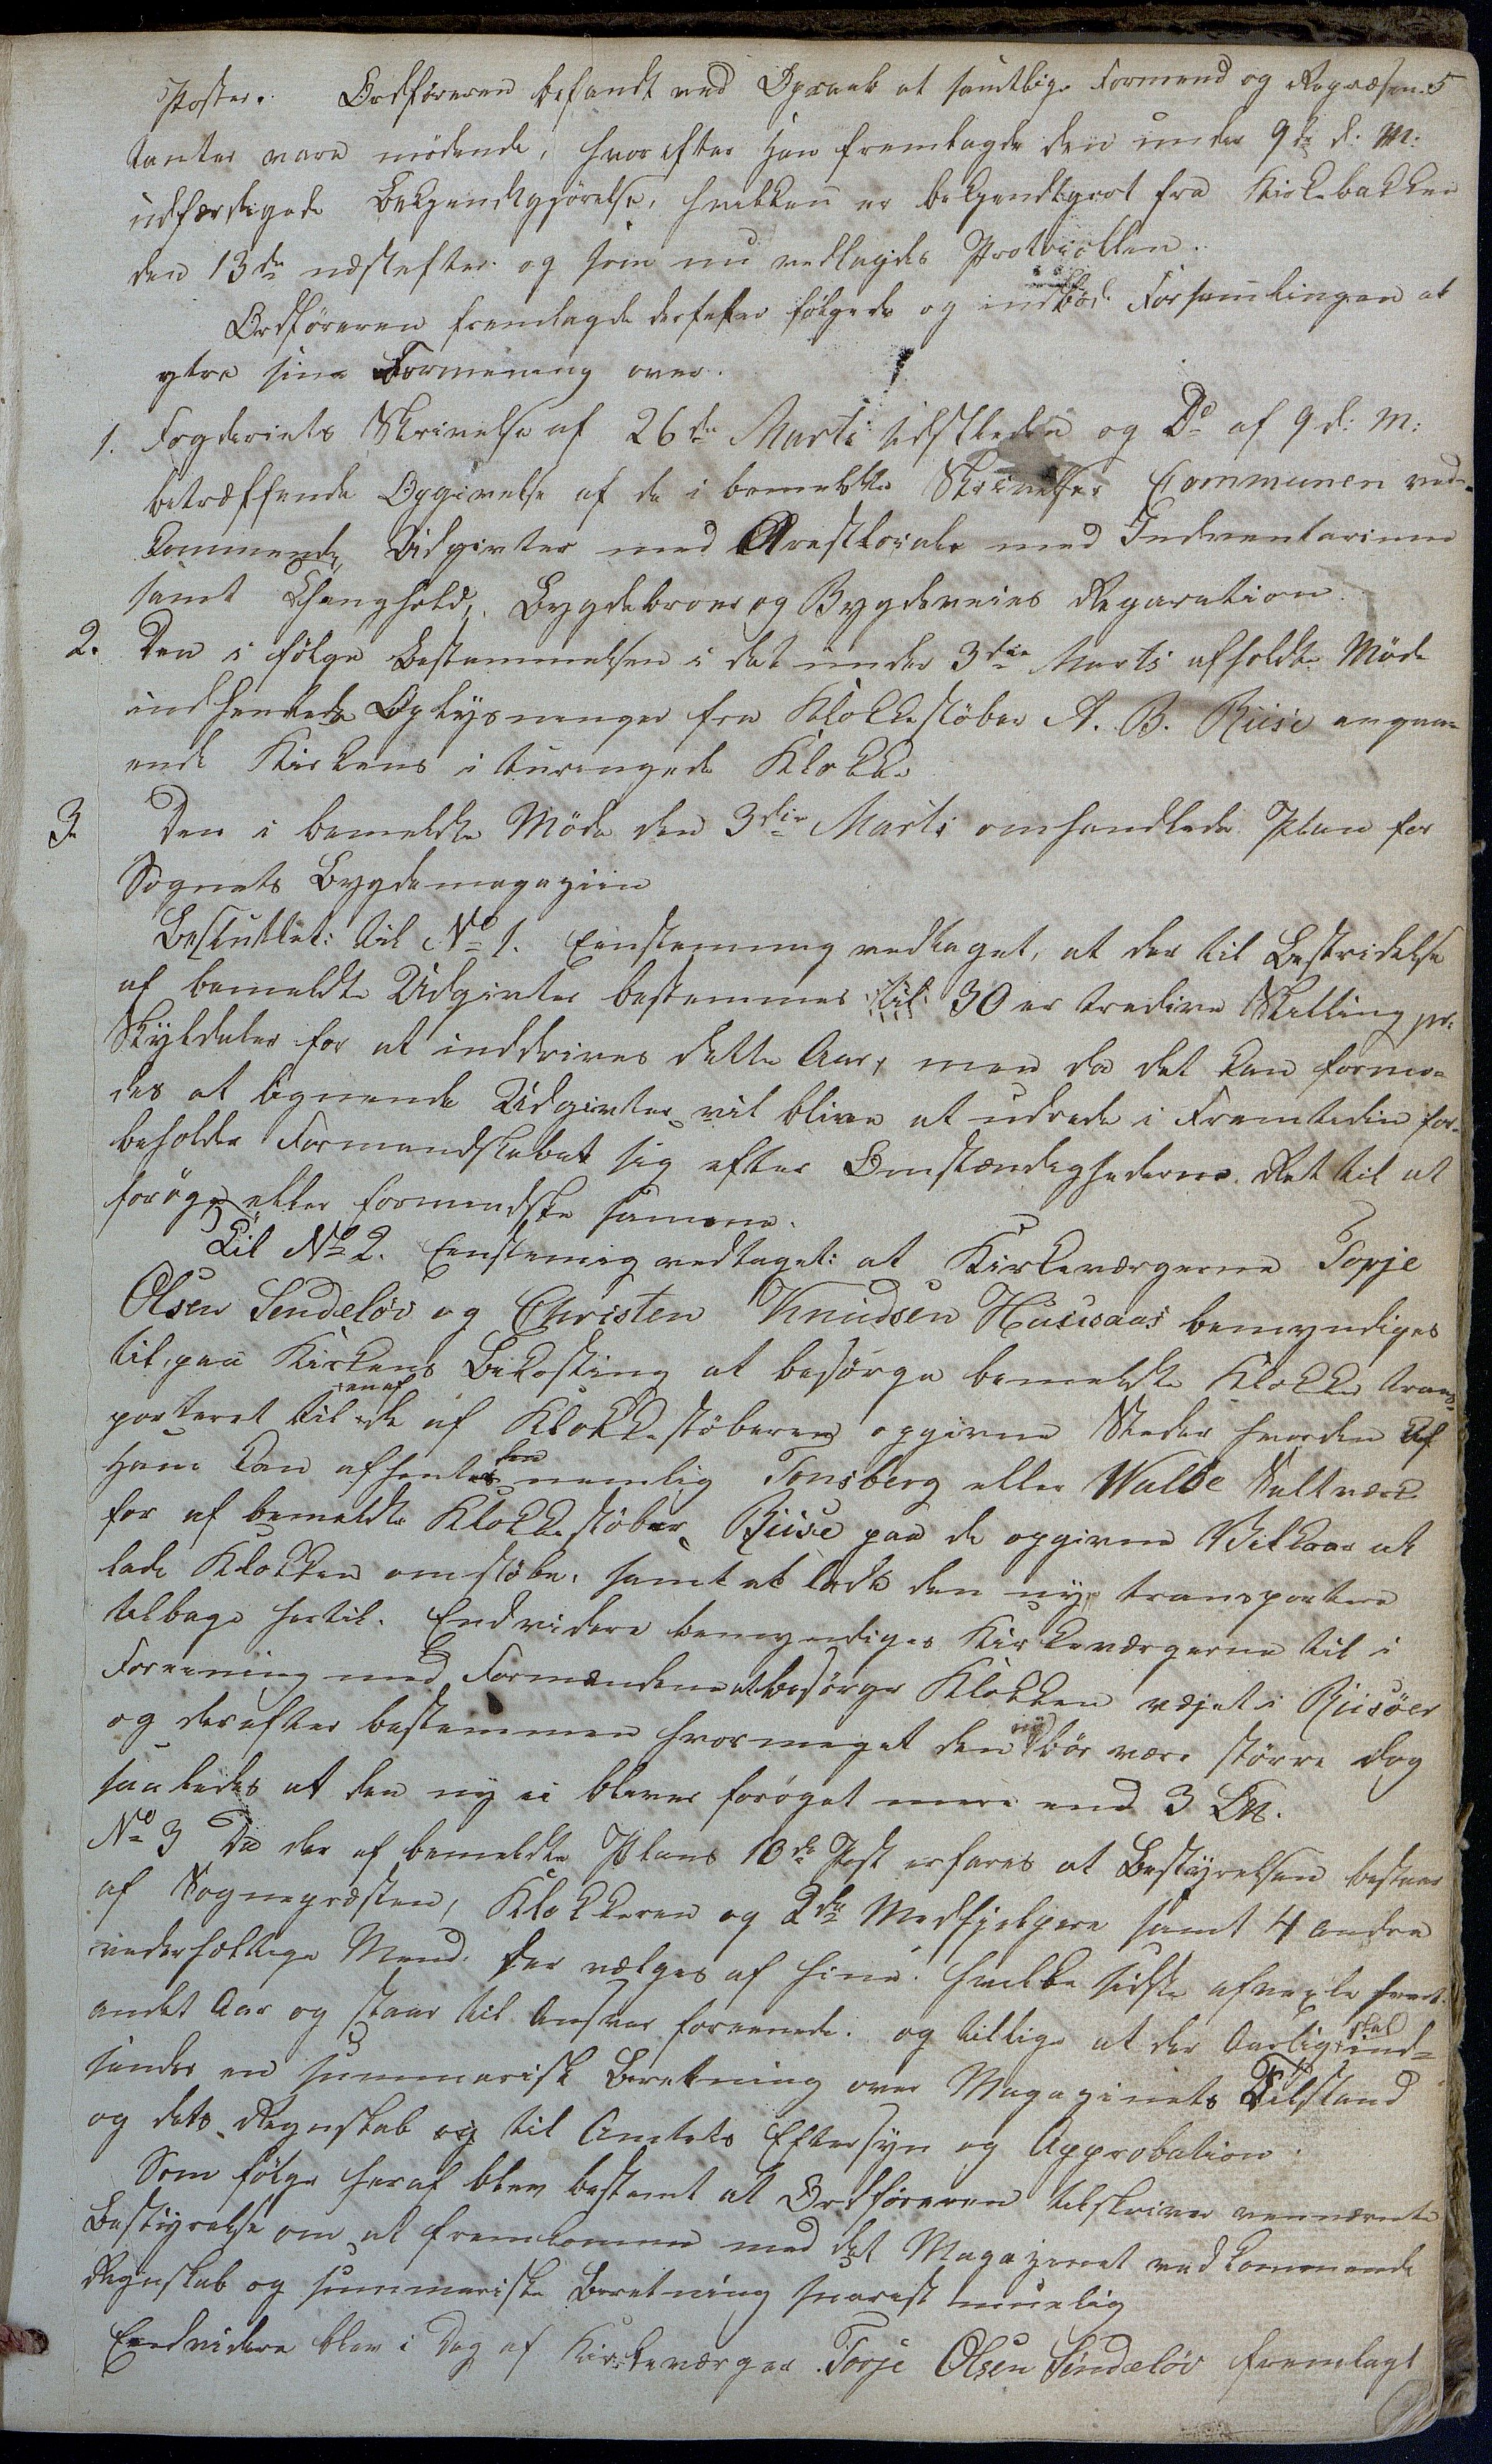 Poster. Ordføreren befandt ved Opraab at samtlige Formænd og Repræsen- 5
tanter vare mødende, hvorefter Han fremlagde den under 9de d: M:
udfærdigede Bekjendtgjørelse, hvilken er bekjendtgjort fra Kirkebakken
den 13de næstefter og som nu vedlagdes Protocollen.
Ordføreren fremlagde derefter følgende og indbød Forsamlingen at
ytre sin Formening over.
1. Fogderiets Skrivelse af 26de Marts sidstleden og Do af 9 d: M:
betræffende Opgivelse af de i bemeldte Skrivelser Communen ved-
kommende Udgivter med Arrestlocale med Indventarium
samt Thinghold, Bygdebroer og Bygdeveies Reparation
2. Den i følge Bestemmelsen i det under 3die Marts afholdte Møde
indhentede Oplysninger fra Klokkestøber A. B. Riise angaa-
ende Kirkens itururingede Klokke
3. Den i bemeldte Møde den 3die Marts omhandlede Plan for
Sognets Bygdemagazin
Besluttet: til No 1. Eenstemmig vedtaget, at der til Bestridelse
af bemeldte Udgivter bestemmes til 30 er tredive Skilling pr.
Skylddaler for at inddrives dette Aar, men da det kan formo-
des at lignende Udgivter vil blive at udrede i Fremtiden for-
beholder Formandskabet sig efter Omstændighederne Ret til at
forøge eller formindske samme.
Til No 2. Eenstemig vedtaget: at Kirkeværgerne Torje
Olsen Sendeløv og Christen Knudsen Huusaas bemyndiges
til, paa Kirkens Bekosting at besørge bemeldte Klokke trans-
porteret til en af de af Klokkestøberen opgivne Steder hvor den af
Ham kan afhentes nemlig Tønsberg eller Walløe Saltværk
for af bemeldte Klokkestøber Riise paa de opgivne Vilkaar at
lade Klokken omstøbe, samt at lade den nye transportere
tilbage hertil. Endvidere bemyndiges Kirkeværgerne til i
Foreening med Formændene at besørge Klokken vejet i Riisøer
og derefter bestemmer hvormeget den ny bør være større dog
saaledes at den ny ei bliver forøget mere end 3 L℔.
No 3 Da der af bemeldte Plans 10de Post erfares at Bestyrelsen bestaar
af Sognepræsten, Klokkeren og 2de Medhjelpere samt 4 andre
vederhæftige Mænd der vælges af hine. hvilke sidste afvexle hvert
andet Aar og staar til Ansvar foreenede. og tillige at der aarlig skal ind-
sendes en summarisk Beretning over Magazinets Tilstand
og dets Regnskab og til Amtets Eftersyn og Approbation.
Som følge heraf blev bestemt at Ordføreren tilskriver evennævnte
Bestyrelse om at fremkomme med det Magazinet vedkommende
Regnskab og summariske Beretning snarest muelig
Endvidere blev i Dag af Kirkeværger Torje Olsen Sindeløv fremlagt